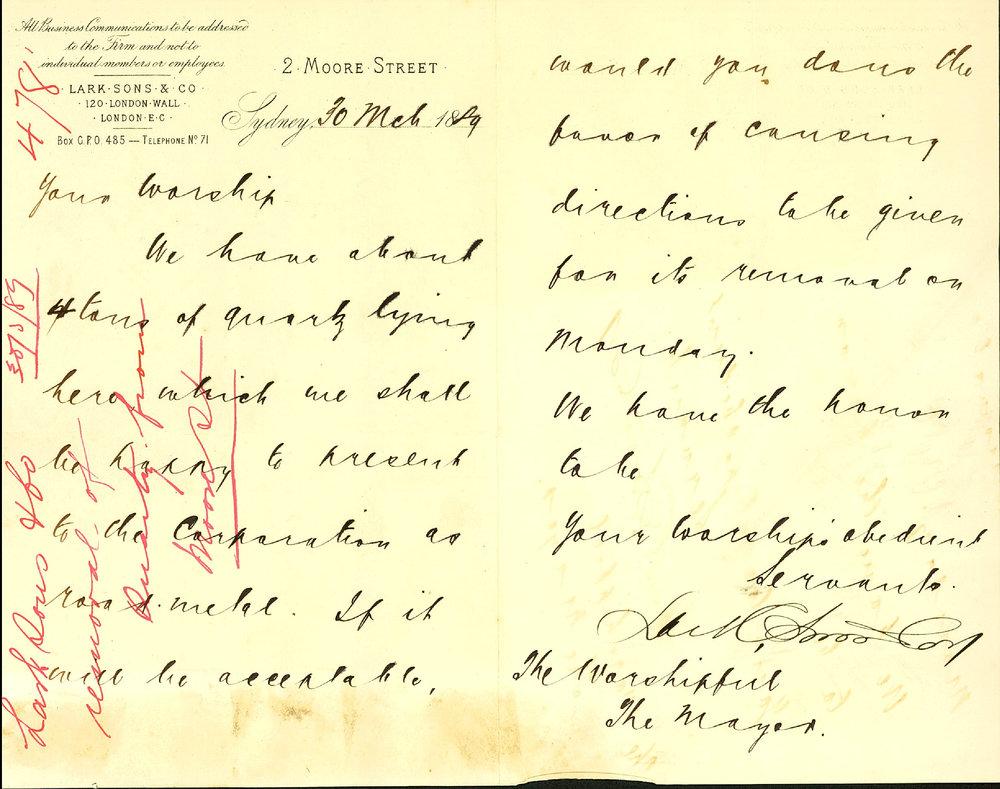 All Business Communications to be addressed
to the Firm and not to
individual members or employees.
LARK·SONS·&·CO·
·120·LONDON·WALL·
·LONDON·E·C·
BOX G.P.O. 485 — TELEPHONE No 71
·2·MOORE·STREET·
Sydney, 30 Mch 1889
Your Worship
We have about
4 tons of quartz lying
here which we shall
be happy to present
to the Corporation as
road metal. If it
will be acceptable,
would you do us the
favor of causing
directions to be given
for its removal on
Monday.
We have the honor
to be
Your Worship's obedient
Servants.
Lark, Sons & Co
The Worshipful
The Mayor.
478
30/3/89
Lark Sons & Co
removal of
Quartz from
Moore St